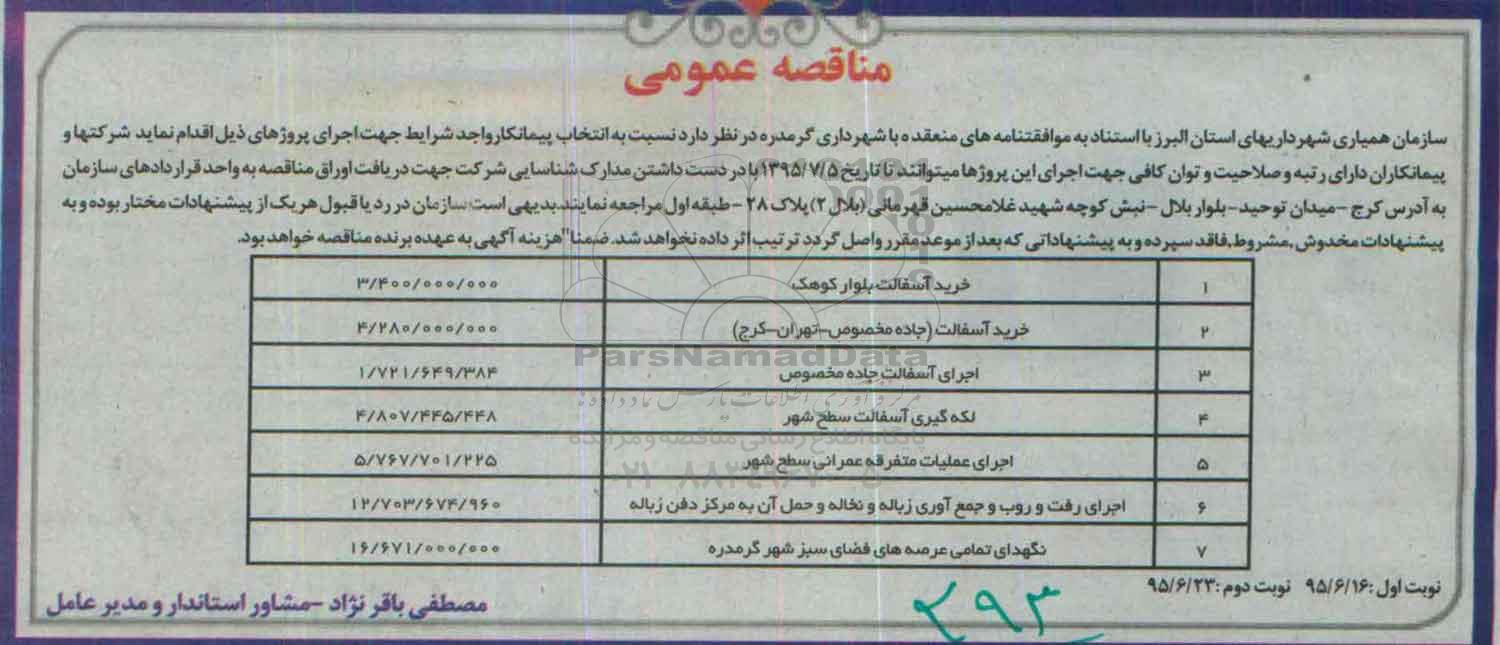 مناقصه عمومی
سازمان همیاری شهرداریهای استان البرز با استناد به موافقتنامه های منعقده با شهرداری گرمدره در نظر دارد نسبت به انتخاب پیمانکار واجد شرایط جهت اجرای پروژهای ذیل اقدام نماید شرکتها و
پیمانکاران دارای رتبه و صلاحیت و توان کافی جهت اجرای این پروژها میتوانند تا تاریخ ۱۳۹۵/۷/۵ با در دست داشتن مدارک شناسایی شرکت جهت دریافت اوراق مناقصه به واحد قراردادهای سازمان
به آدرس کرج -میدان توحید- بلوار بلال -نبش کوچه شهید غلامحسین قهرمانی (بلال ۲) پلاک ۲۸ - طبقه اول مراجعه نمایند.بدیهی است سازمان در رد یا قبول هر یک از پیشنهادات مختار بوده و به
پیشنهادات مخدوش ,مشروط,فاقد سپرده و به پیشنهاداتی که بعد از موعد مقرر واصل گردد ترتیب اثر داده نخواهد شد. ضمنا"هزینه آگهی به عهده برنده مناقصه خواهد بود.
۱ خرید آسفالت بلوار کوهک ۳/۴۰۰/۰۰۰/۰۰۰
۲ خرید آسفالت (جاده مخصوص-تهران-کرج) ۴/۲۸۰/۰۰۰/۰۰۰
۳ اجرای آسفالت جاده مخصوص ۱/۷۲۱/۶۴۹/۳۸۴
۴ لکه گیری آسفالت سطح شهر ۴/۸۰۷/۴۴۵/۴۴۸
۵ اجرای عملیات متفرقه عمرانی سطح شهر ۵/۷۶۷/۷۰۱/۲۲۵
۶ اجرای رفت و روب و جمع آوری زباله و نخاله و حمل آن به مرکز دفن زباله ۱۲/۷۰۳/۶۷۴/۹۶۰
۷ نگهدای تمامی عرصه های فضای سبز شهر گرمدره ۱۶/۶۷۱/۰۰۰/۰۰۰
ParsNamadData
پایگاه اطلاع رسانی مناقصه و مزایده
نوبت اول :۹۵/۶/۱۶ نوبت دوم :۹۵/۶/۲۳
مصطفی باقر نژاد -مشاور استاندار و مدیر عامل
۲۹۳